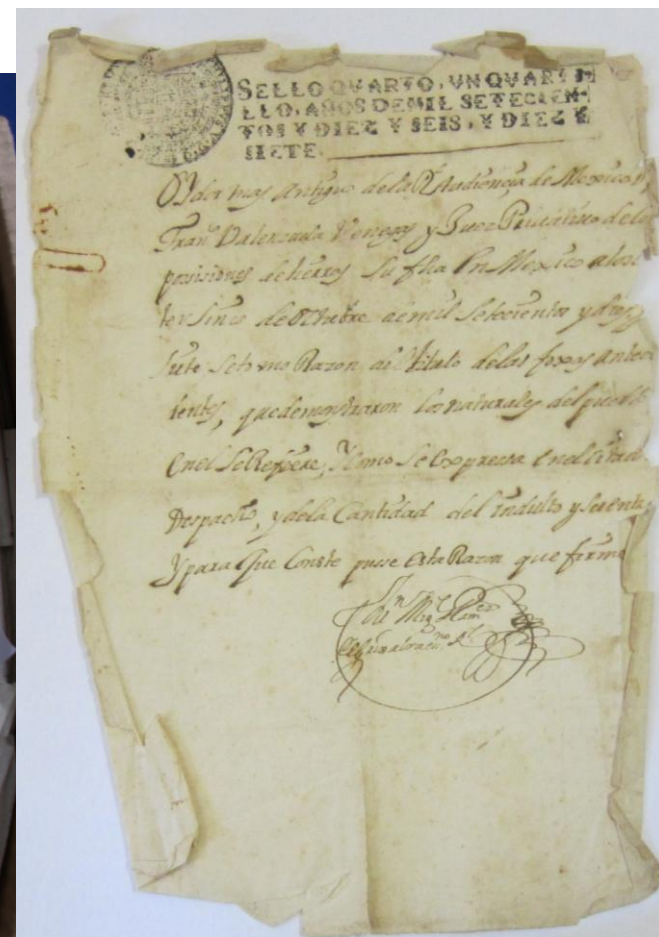 SELLO QVARTO, VN QVARTI
LLO, AÑOS DE MIL SETECIEN
TOS Y DIEZ Y SEIS, Y DIEZ Y
SIETE.
Oydor mas Antiguo de la Rl Audiencia de Mexico D,
Franco Valenzuela Venegas y Juez Privativo de la
posisiones de tierras su fha En Mexico a los
de Octubre de mil Setecientos y diez y
siete Se tomo Razon del titulo de las foxas Antece
dentes, que demostraron los naturales del pueblo
En el Se Refiere, Y como Se Expressa En el
Despacho, y de la Cantidad del Indulto y
Y para Que Conste puse Esta Razon que firme